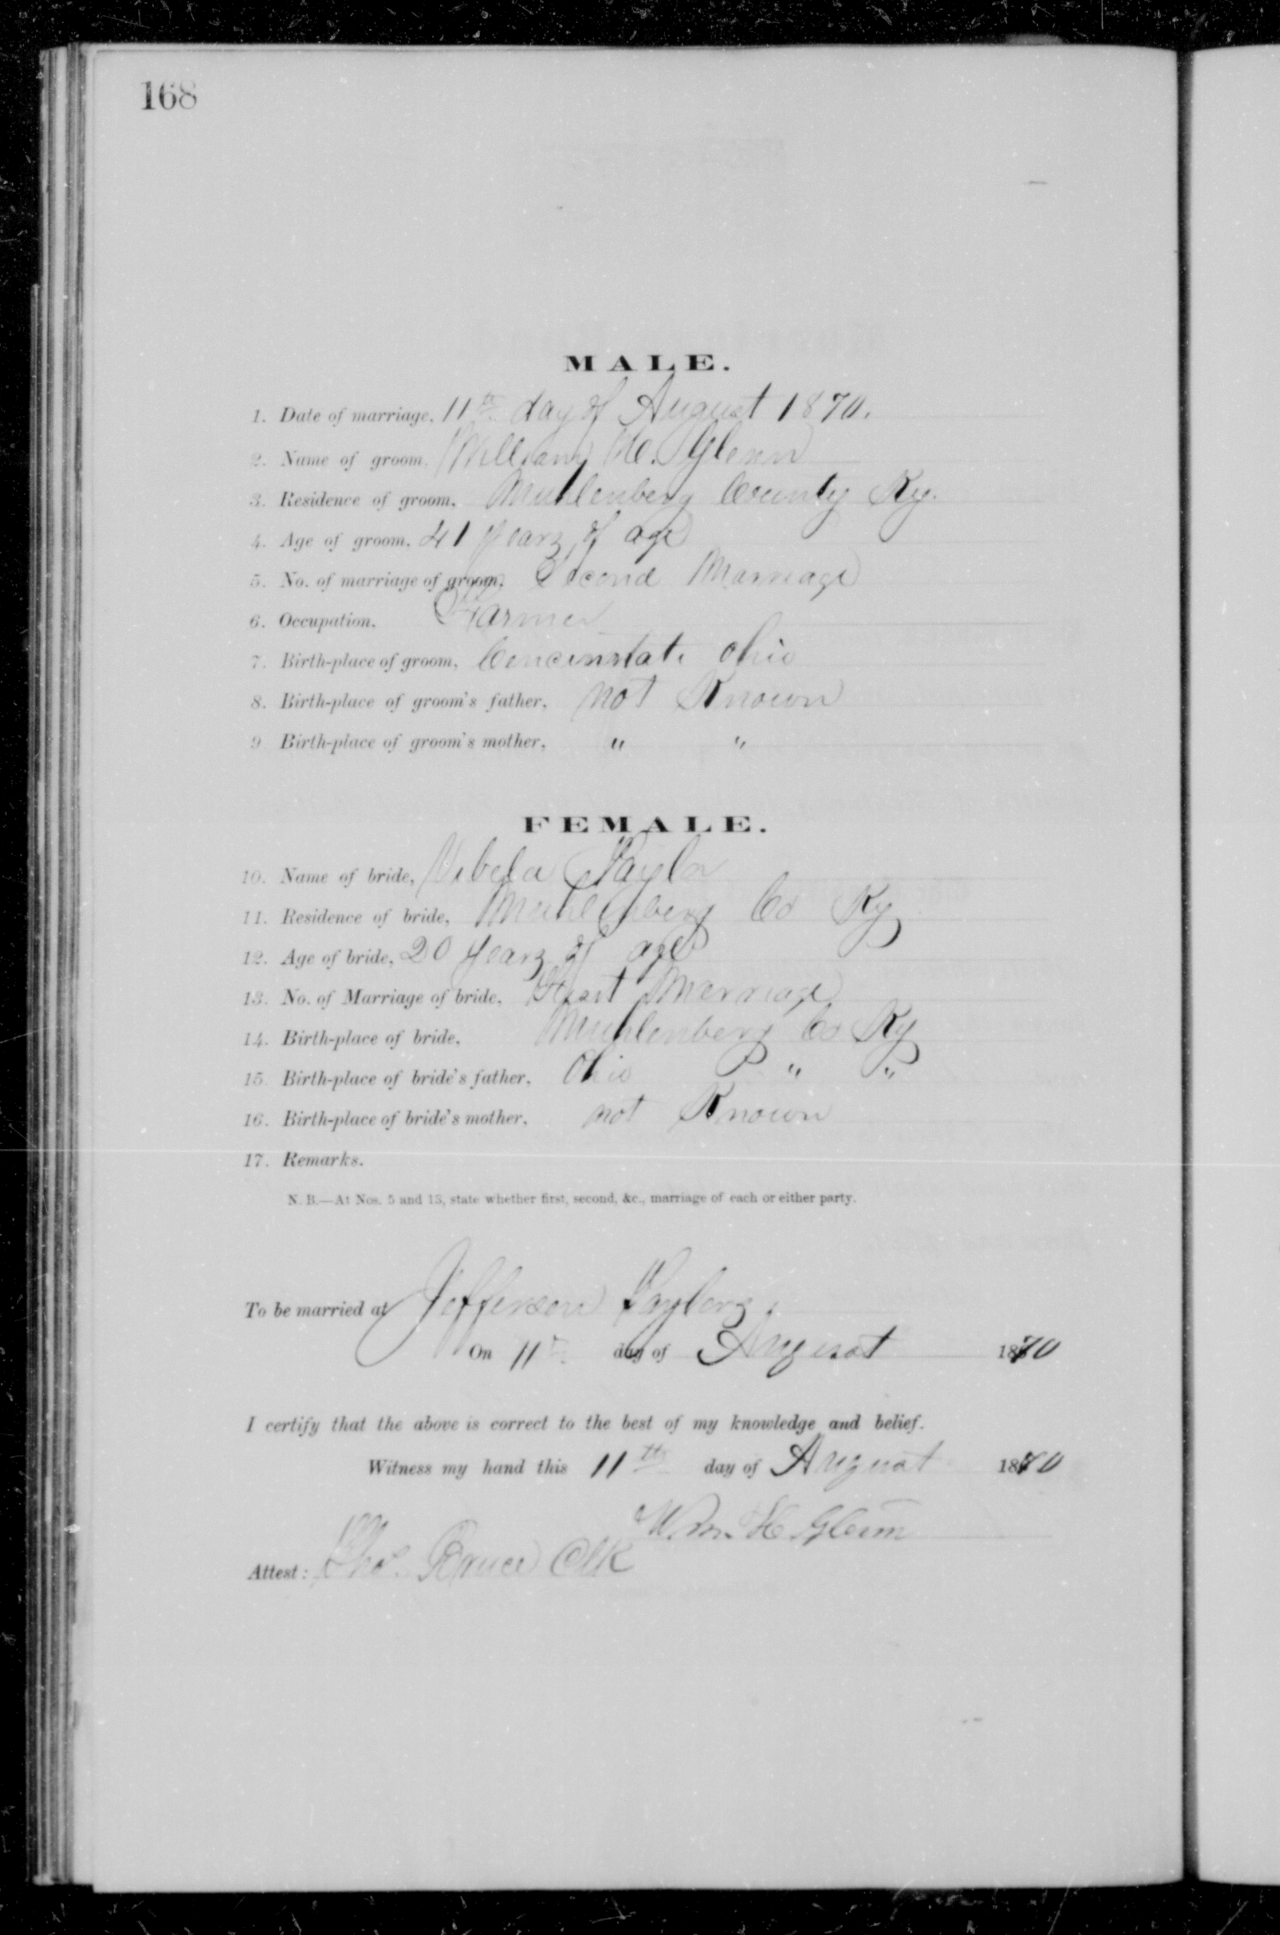 168
MALE.
1. Date of marriage, 11th day of August 1870.
2. Name of groom, William H. Glenn
3. Residence of groom, Muhlenberg County Ky.
4. Age of groom, 41 years of age
5. No. of marriage of groom, Second Marriage
6. Occupation, Farmer
7. Birth-place of groom, Cincinnati Ohio
8. Birth-place of groom's father, not Known
9 Birth-place of groom's mother, " "
FEMALE.
10. Name of bride, Taylor
11. Residence of bride, Muhlenberg Co Ky
12. Age of bride, 20 years of age
13. No. of Marriage of bride, First Marriage
14. Birth-place of bride, Muhlenberg Co Ky
15. Birth-place of bride's father, Ohio " "
16. Birth-place of bride's mother, not Known
17. Remarks.
N. B.—At Nos. 5 and 13, state whether first, second, &c., marriage of each or either party.
To be married at Jefferson Taylors.
On 11th day of August 1870
I certify that the above is correct to the best of my knowledge and belief.
Witness my hand this 11th day of August 1870
Wm. H Glenn
Attest: Thos. Bruce Clk